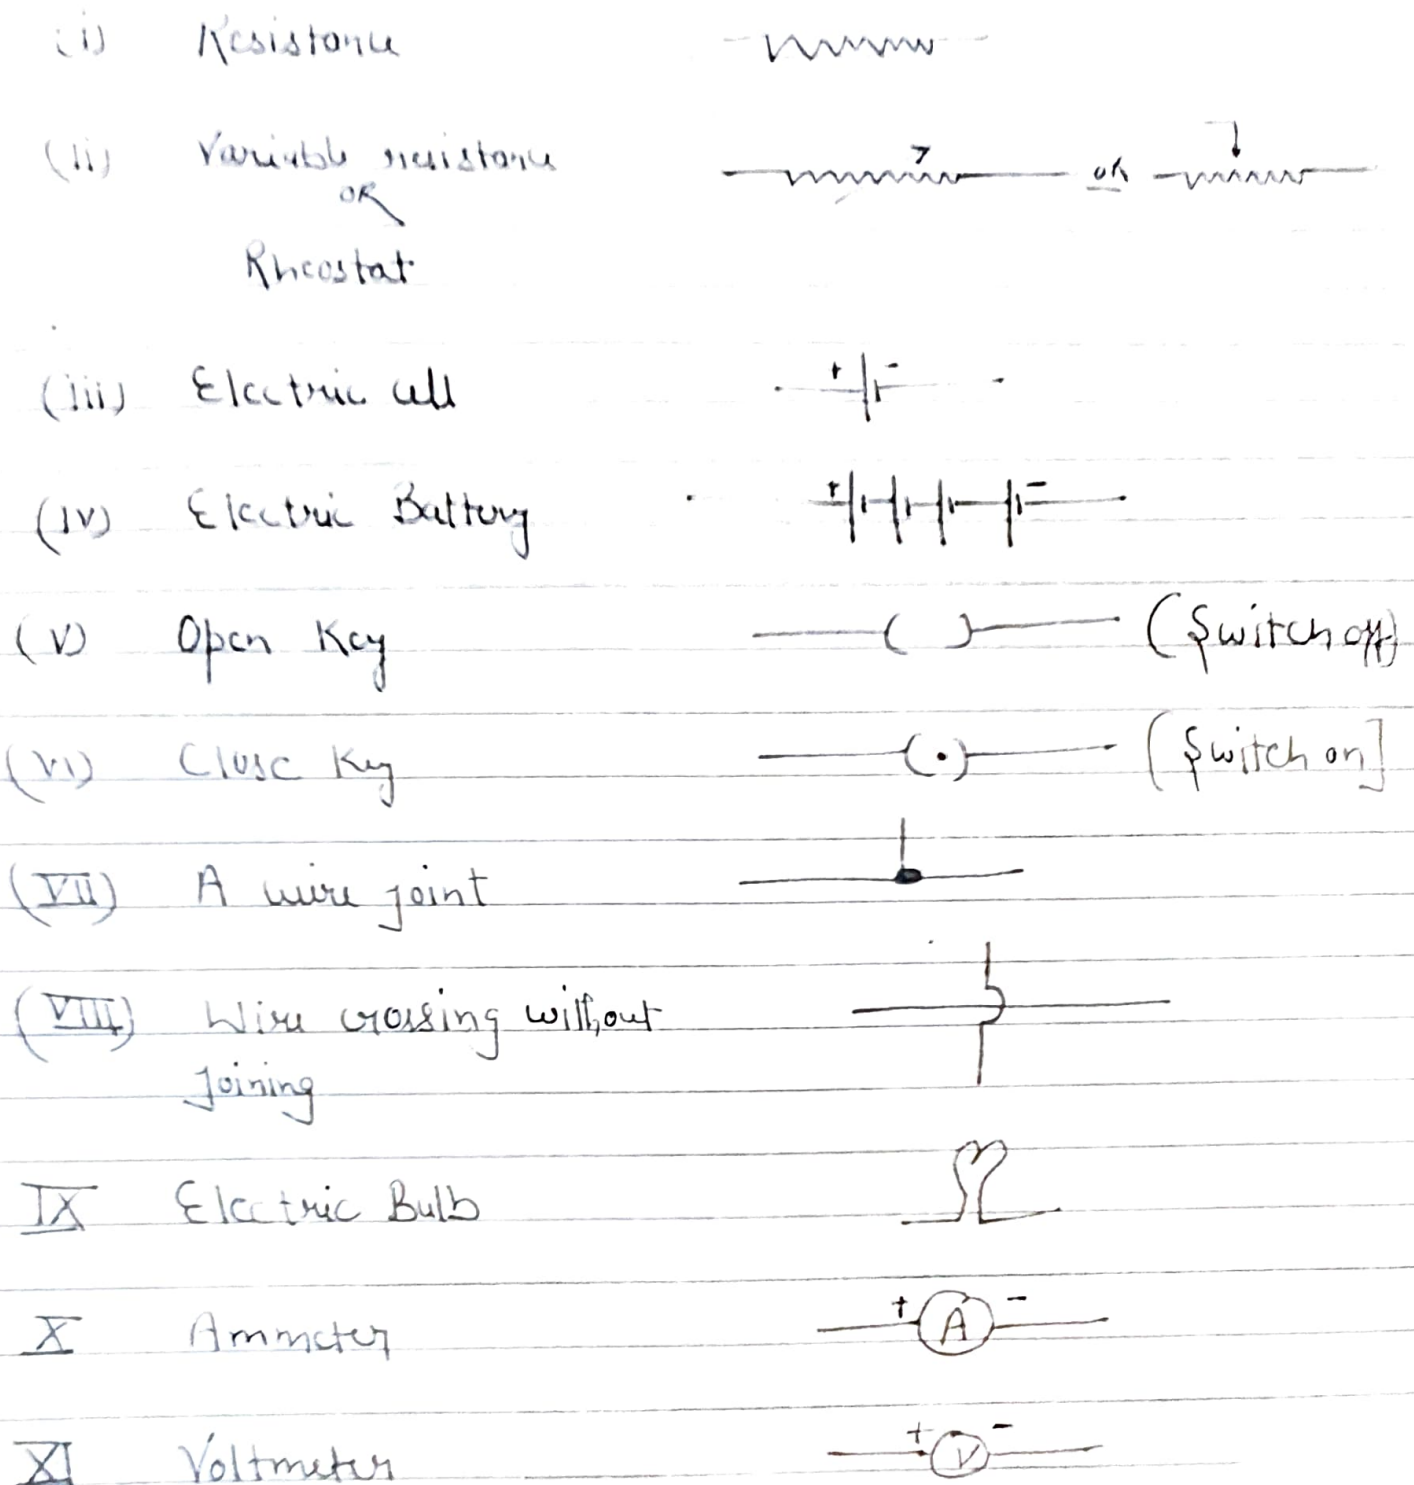 (i) Resistance
(ii) Variable resistance or
OR
Rheostat
(iii) Electric cell + -
(iv) Electric Battery + -
(v) Open Key (Switch off)
(vi) Close Key [Switch on]
(VII) A wire joint
(VIII) Wire crossing without
Joining
IX Electric Bulb
X Ammeter + A -
XI Voltmeter + V -